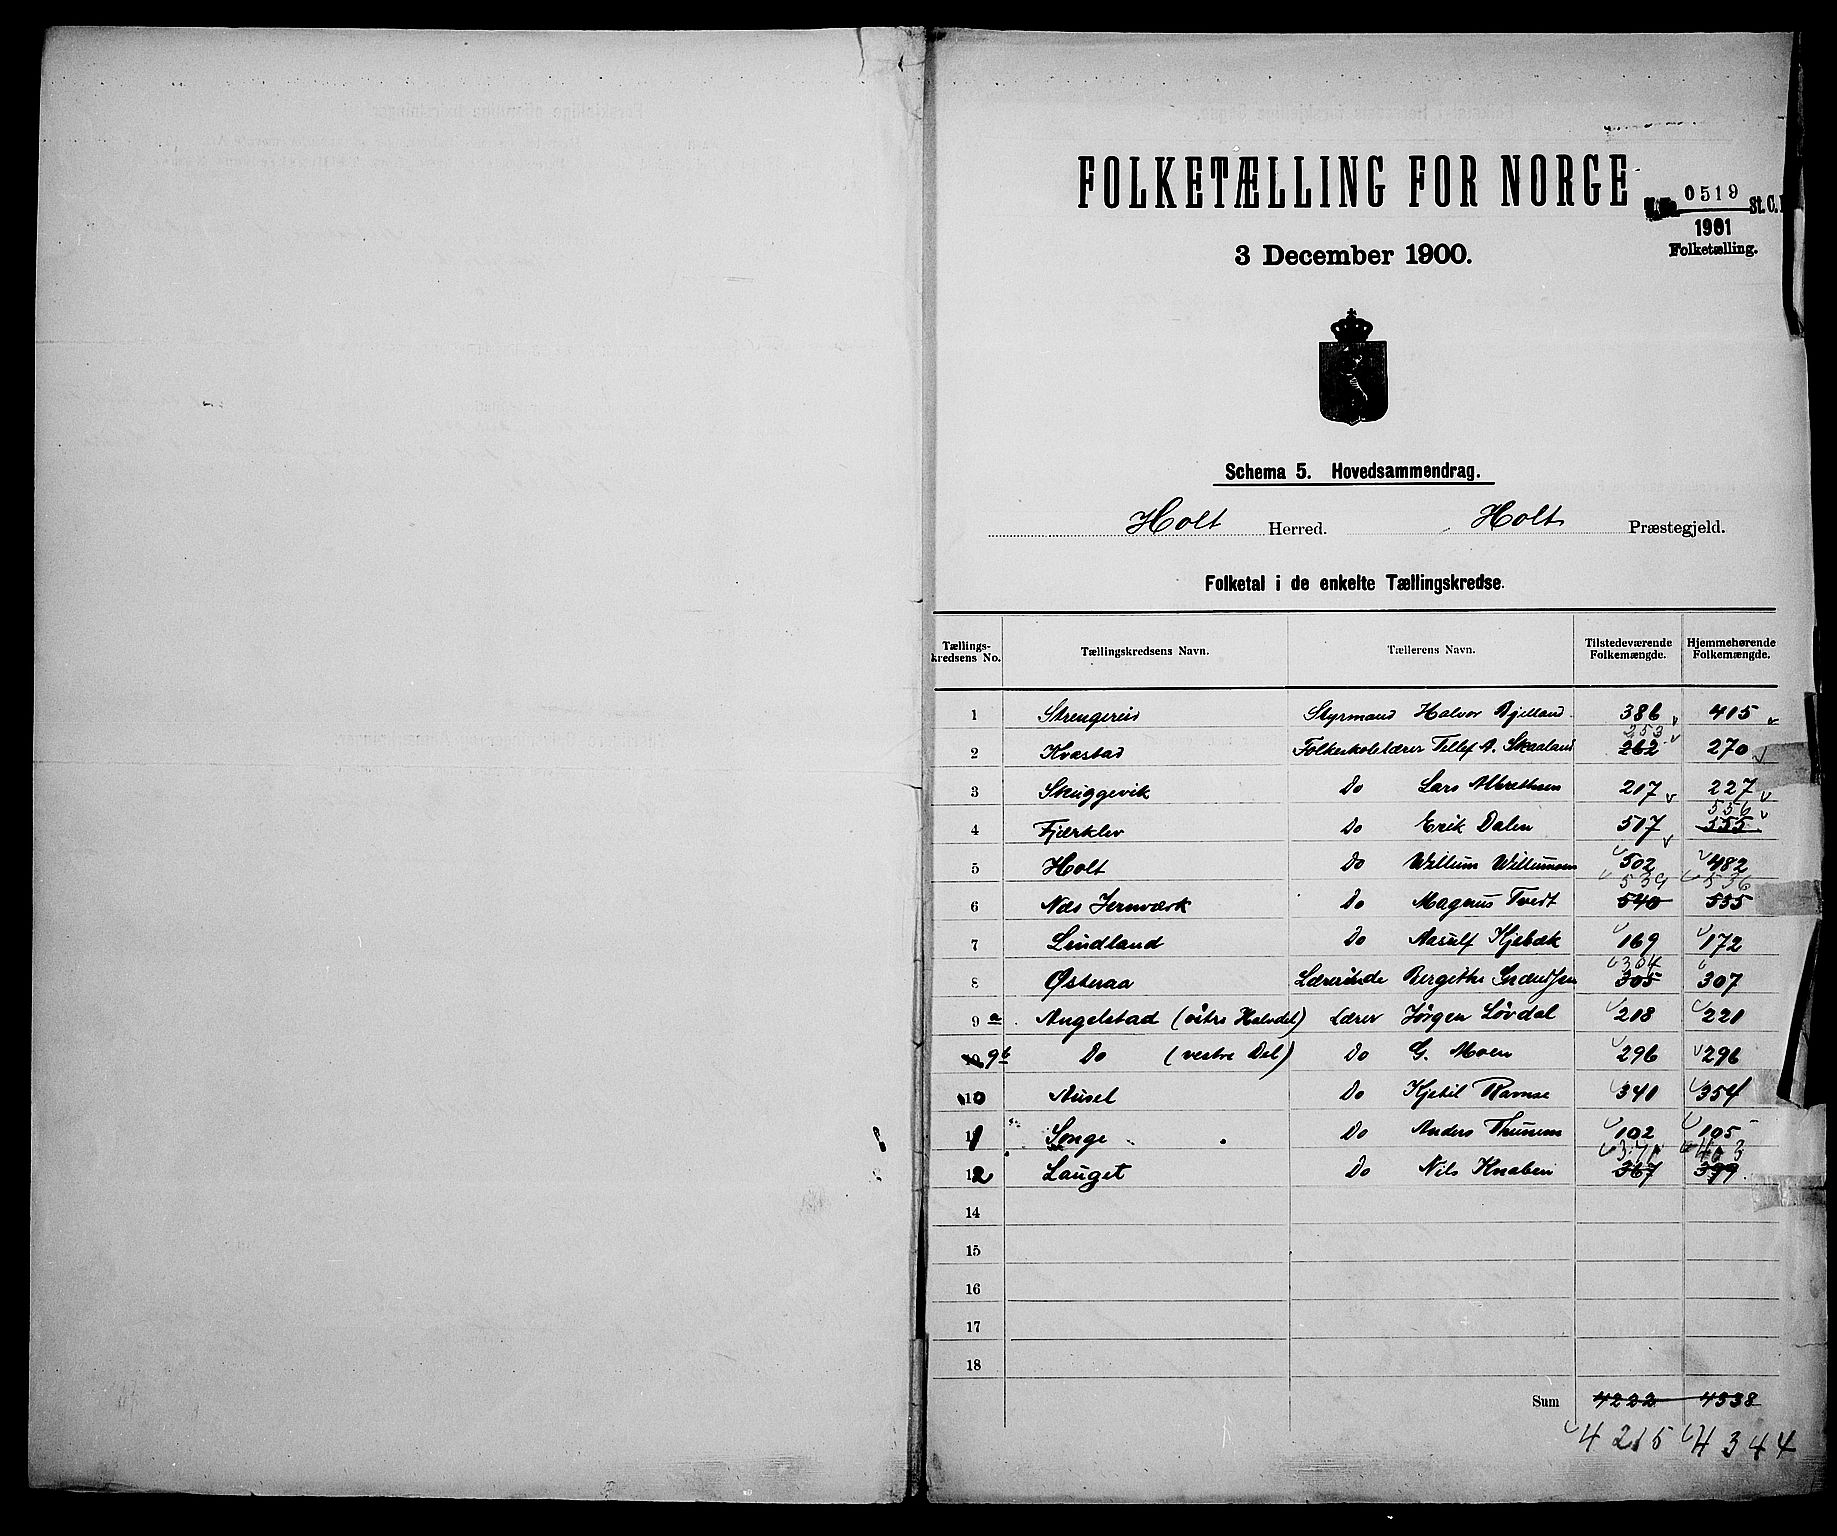 FOLKETÆLLING FOR NORGE
0519 St. C.
1901
Folketælling.
3 December 1900.
Schema 5. Hovedsammendrag.
Holt Herred. Holt Præstegjeld.
Folketal i de enkelte Tællingskredse.
Tællings-kredsens No. Tællingskredsens Navn. Tællerens Navn. Tilstedeværende Folkemængde. Hjemmehørende Folkemængde.
1 Strengereid Styrmand Halvor Bjelland 386 415
253
2 Kvastad Folkeskolelærer Tellef A. Skaaland 262 270
3 Skuggevik Do Lars Albrethsen 217 227
556
4 Fjærklev Do Erik Dalen 517 555
5 Holt Do Willum Willumsen 502 482
539 536
6 Næs Jernværk Do Magnus Tvedt 540 535
7 Lindland Do Aasulf Kjebæk 169 172
304
8 Østeraa Lærerinde Bergithe 305 307
9 a Angelstad (østre Halvdel) Lærer Jørgen Løvdal 218 221
10 9b Do (vestre Del) Do G. Moen 296 296
10 Ausel Do Kjetil Ramse 340 354
11 Songe Do Anders Thunem 102 105
371 403
12 Lauget Do Nils Knaben 367 399
14
15
16
17
18
Sum 4222 4338
4215 4344